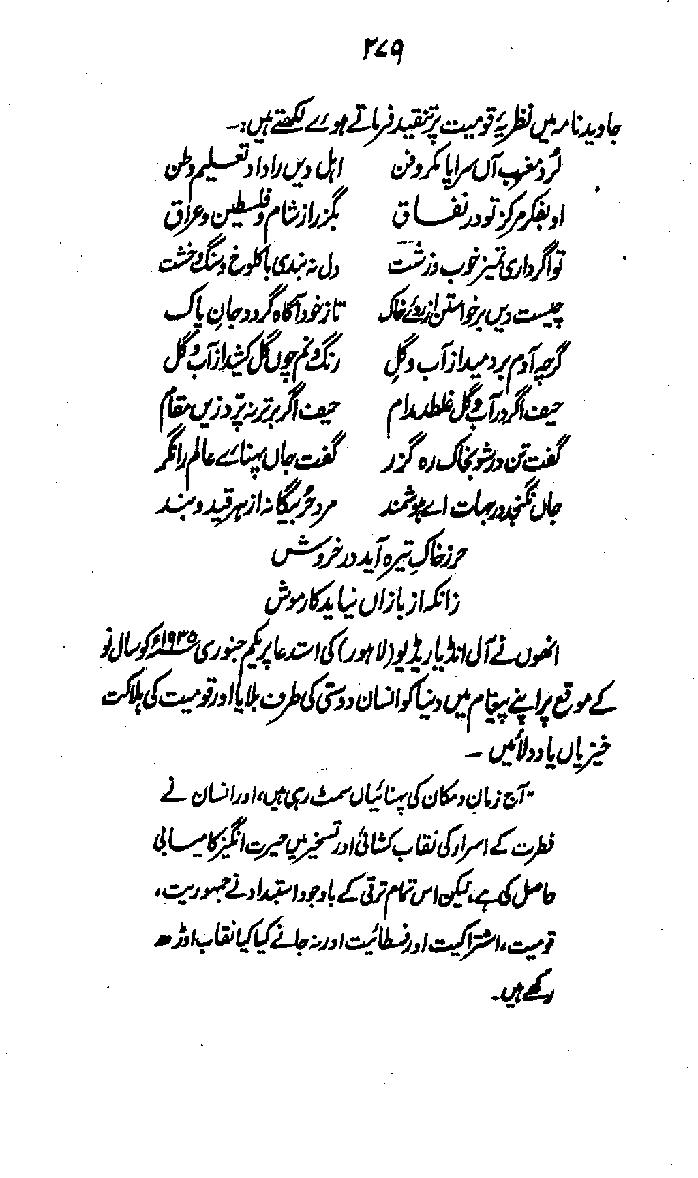 ۲۷۹
جاوید نامہ میں نظریۂ قومیت پر تنقید فرماتے ہوے لکھتے ہیں:۔
لُرد مغرب آں سراپا مکر و فن اہل دیں را داد تعلیم وطن
او بفکر مرکز تو در نفاق بگزر از شام و فلسطین و عراق
تو اگر داری تمیز خوب و زشت دل نہ بندی با کلوخ و سنگ و خشت
چیست دیں برخاستن از روئے خاک تا ز خود آگاہ گردد جانِ پاک
گرچہ آدم بر دمید از آب و گِل رنگ و نم چوں گل کشید از آب و گل
حیف اگر در آب و گل غلطد مدام حیف اگر برتر نہ پرد زیں مقام
گفت تن در شو بخاک رہ گزر گفت جاں پہنائے عالم را نگر
جاں نگنجد در جہات اے ہوشمند مرد حُر بیگانہ از ہر قید و بند
حرز خاکِ تیرہ آید در خروش
زانکہ از بازاں نیاید کار موش
انھوں نے آل انڈیا ریڈیو (لاہور) کی استدعا پر یکم جنوری ۱۹۳۵ء کو سال نو
کے موقع پر اپنے پیغام میں دنیا کو انسان دوستی کی طرف بلایا اور قومیت کی ہلاکت
خیزیاں یاد دلائیں ۔
"آج زمان و مکان کی پہنائیاں سمٹ رہی ہیں، اور انسان نے
فطرت کے اسرار کی نقاب کشائی اور تسخیر میں حیرت انگیز کامیابی
حاصل کی ہے، لیکن اس تمام ترقی کے باوجود استبداد نے جمہوریت،
قومیت، اشتراکیت اور فسطائیت اور نہ جانے کیا کیا نقاب اوڑھ
رکھے ہیں۔